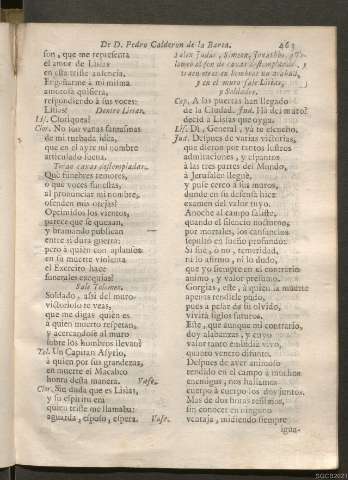 De D. Pedro Calderon de la Barca. 463
son, que me representa
el amor de Lisias
en esta triste ausencia.
Engañarme à mi misma
amorosa quisiera,
respondiendo à sus voces:
Lisias! Dentro Lisias.
Lis. Cloriquea!
Clor. No son vanas fantasmas
de mi turbada idea,
que en el ayre mi nombre
articulado suena.
Tocan caxas destempladas.
Què funebres temores,
o què voces funestas,
al pronunciar mi nombre,
ofenden mis orejas!
Oprimidos los vientos,
parece que se quexan,
y bramando publican
entre si dura guerra:
pero à quièn con aplausos
en su muerte violenta
el Exercito hace
funerales exequias?
Sale Tolomeo.
Soldado, assi del muro
victorioso te veas,
que me digas quièn es
à quien muerto respetan,
y acercandose al muro
sobre los hombros llevan?
Tol. Un Capitan Asyrio,
à quien por sus grandezas,
en muerte el Macabeo
honra desta manera. Vase.
Clor. Sin duda que es Lisias,
y su espiritu era
quien triste me llamaba:
aguarda, esposo, espera. Vase.
Salen Judas, Simeon, Jonathàs, y Tolomeo
al son de caxas destempladas, y
traen otros en hombros un ataud,
y en el muro sale Lisias,
y Soldados.
Cap. A las puertas han llegado
de la Ciudad. Jud. Ha del muro!
decid a Lisias que oyga.
Lis. Dì, General, yà te escucho.
Jud. Despues de varias victorias,
que dieron por tantos lustros
admiraciones, y espantos
à las tres partes del Mundo,
à Jerusalèn lleguè,
y puse cerco à sus muros,
donde en su defensa hace
examen del valor suyo.
Anoche al campo saliste,
quando el silencio nocturno,
por mortales, los cansancios
sepultò en sueño profundo:
Si fue, ò no, temeridad,
ni lo afirmo, ni lo dudo,
que yo siempre en el contrario
animo, y valor presumo.
Gorgias, este, à quien la muerte
apenas rendirle pudo,
pues à pesar de su olvido,
vivirà siglos futuros.
Este, que aunque mi contrario,
doy alabanzas, y cuyo
valor tanto embidio vivo,
quanto venero difunto.
Despues de aver animoso
rendido en el campo à muchos
enemigos, nos hallamos
cuerpo à cuerpo los dos juntos.
Mas de dos horas reñimos,
sin conocer en ninguno
ventaja, midiendo siempre
igua-